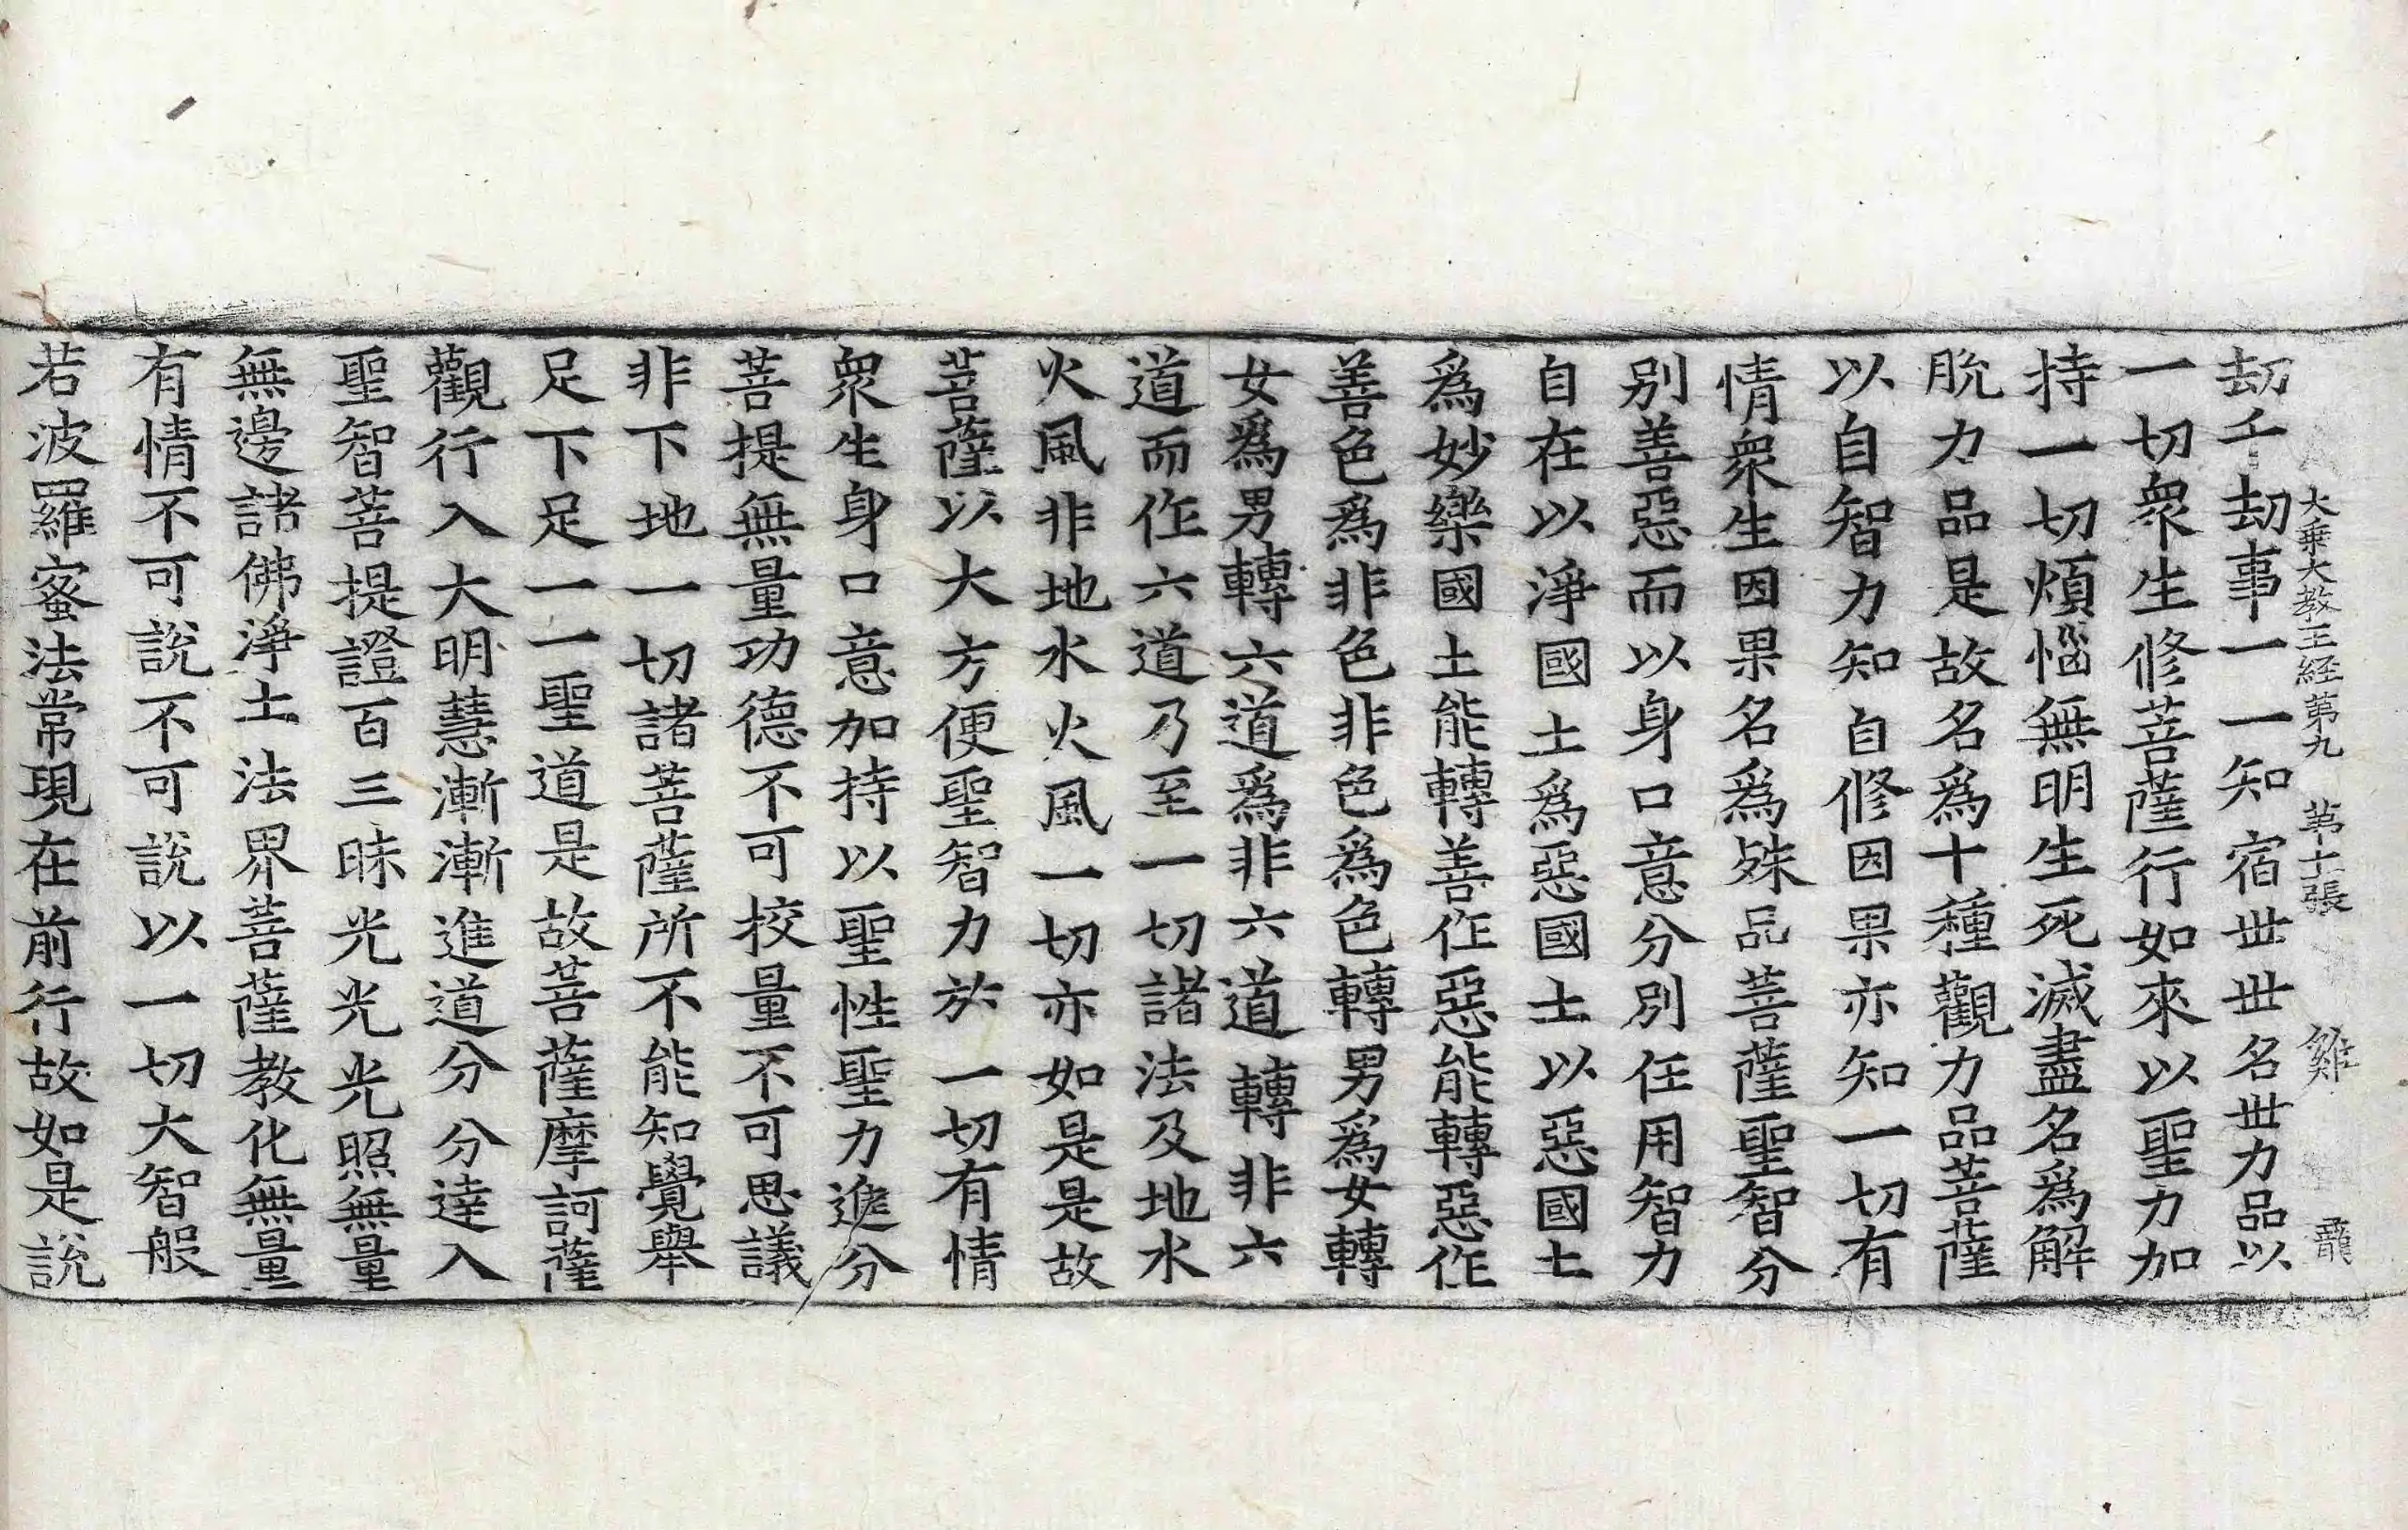 大乗大教王経第九 第十張 雞 龍
劫千劫事一一知宿世世名世力品以
一切衆生修菩薩行如來以聖力加
持一切煩惱無明生死滅盡名爲解
脫力品是故名爲十種觀力品菩薩
以自智力知自修因果亦知一切有
情衆生因果名爲殊品菩薩聖智分
別善惡而以身口意分別任用智力
自在以淨國土爲惡國土以惡國土
爲妙樂國土能轉善作惡能轉惡作
善色爲非色非色爲色轉男爲女轉
女爲男轉六道爲非六道轉非六
道而作六道乃至一切諸法及地水
火風非地水火風一切亦如是是故
菩薩以大方便聖智力於一切有情
衆生身口意加持以聖性聖力進分
菩提無量功德不可校量不可思議
非下地一切諸菩薩所不能知覺舉
足下足一一聖道是故菩薩摩訶薩
觀行入大明慧漸漸進道分分達入
聖智菩提證百三昧光光光照無量
無邊諸佛淨土法界菩薩教化無量
有情不可說不可說以一切大智般
若波羅蜜法常現在前行故如是說